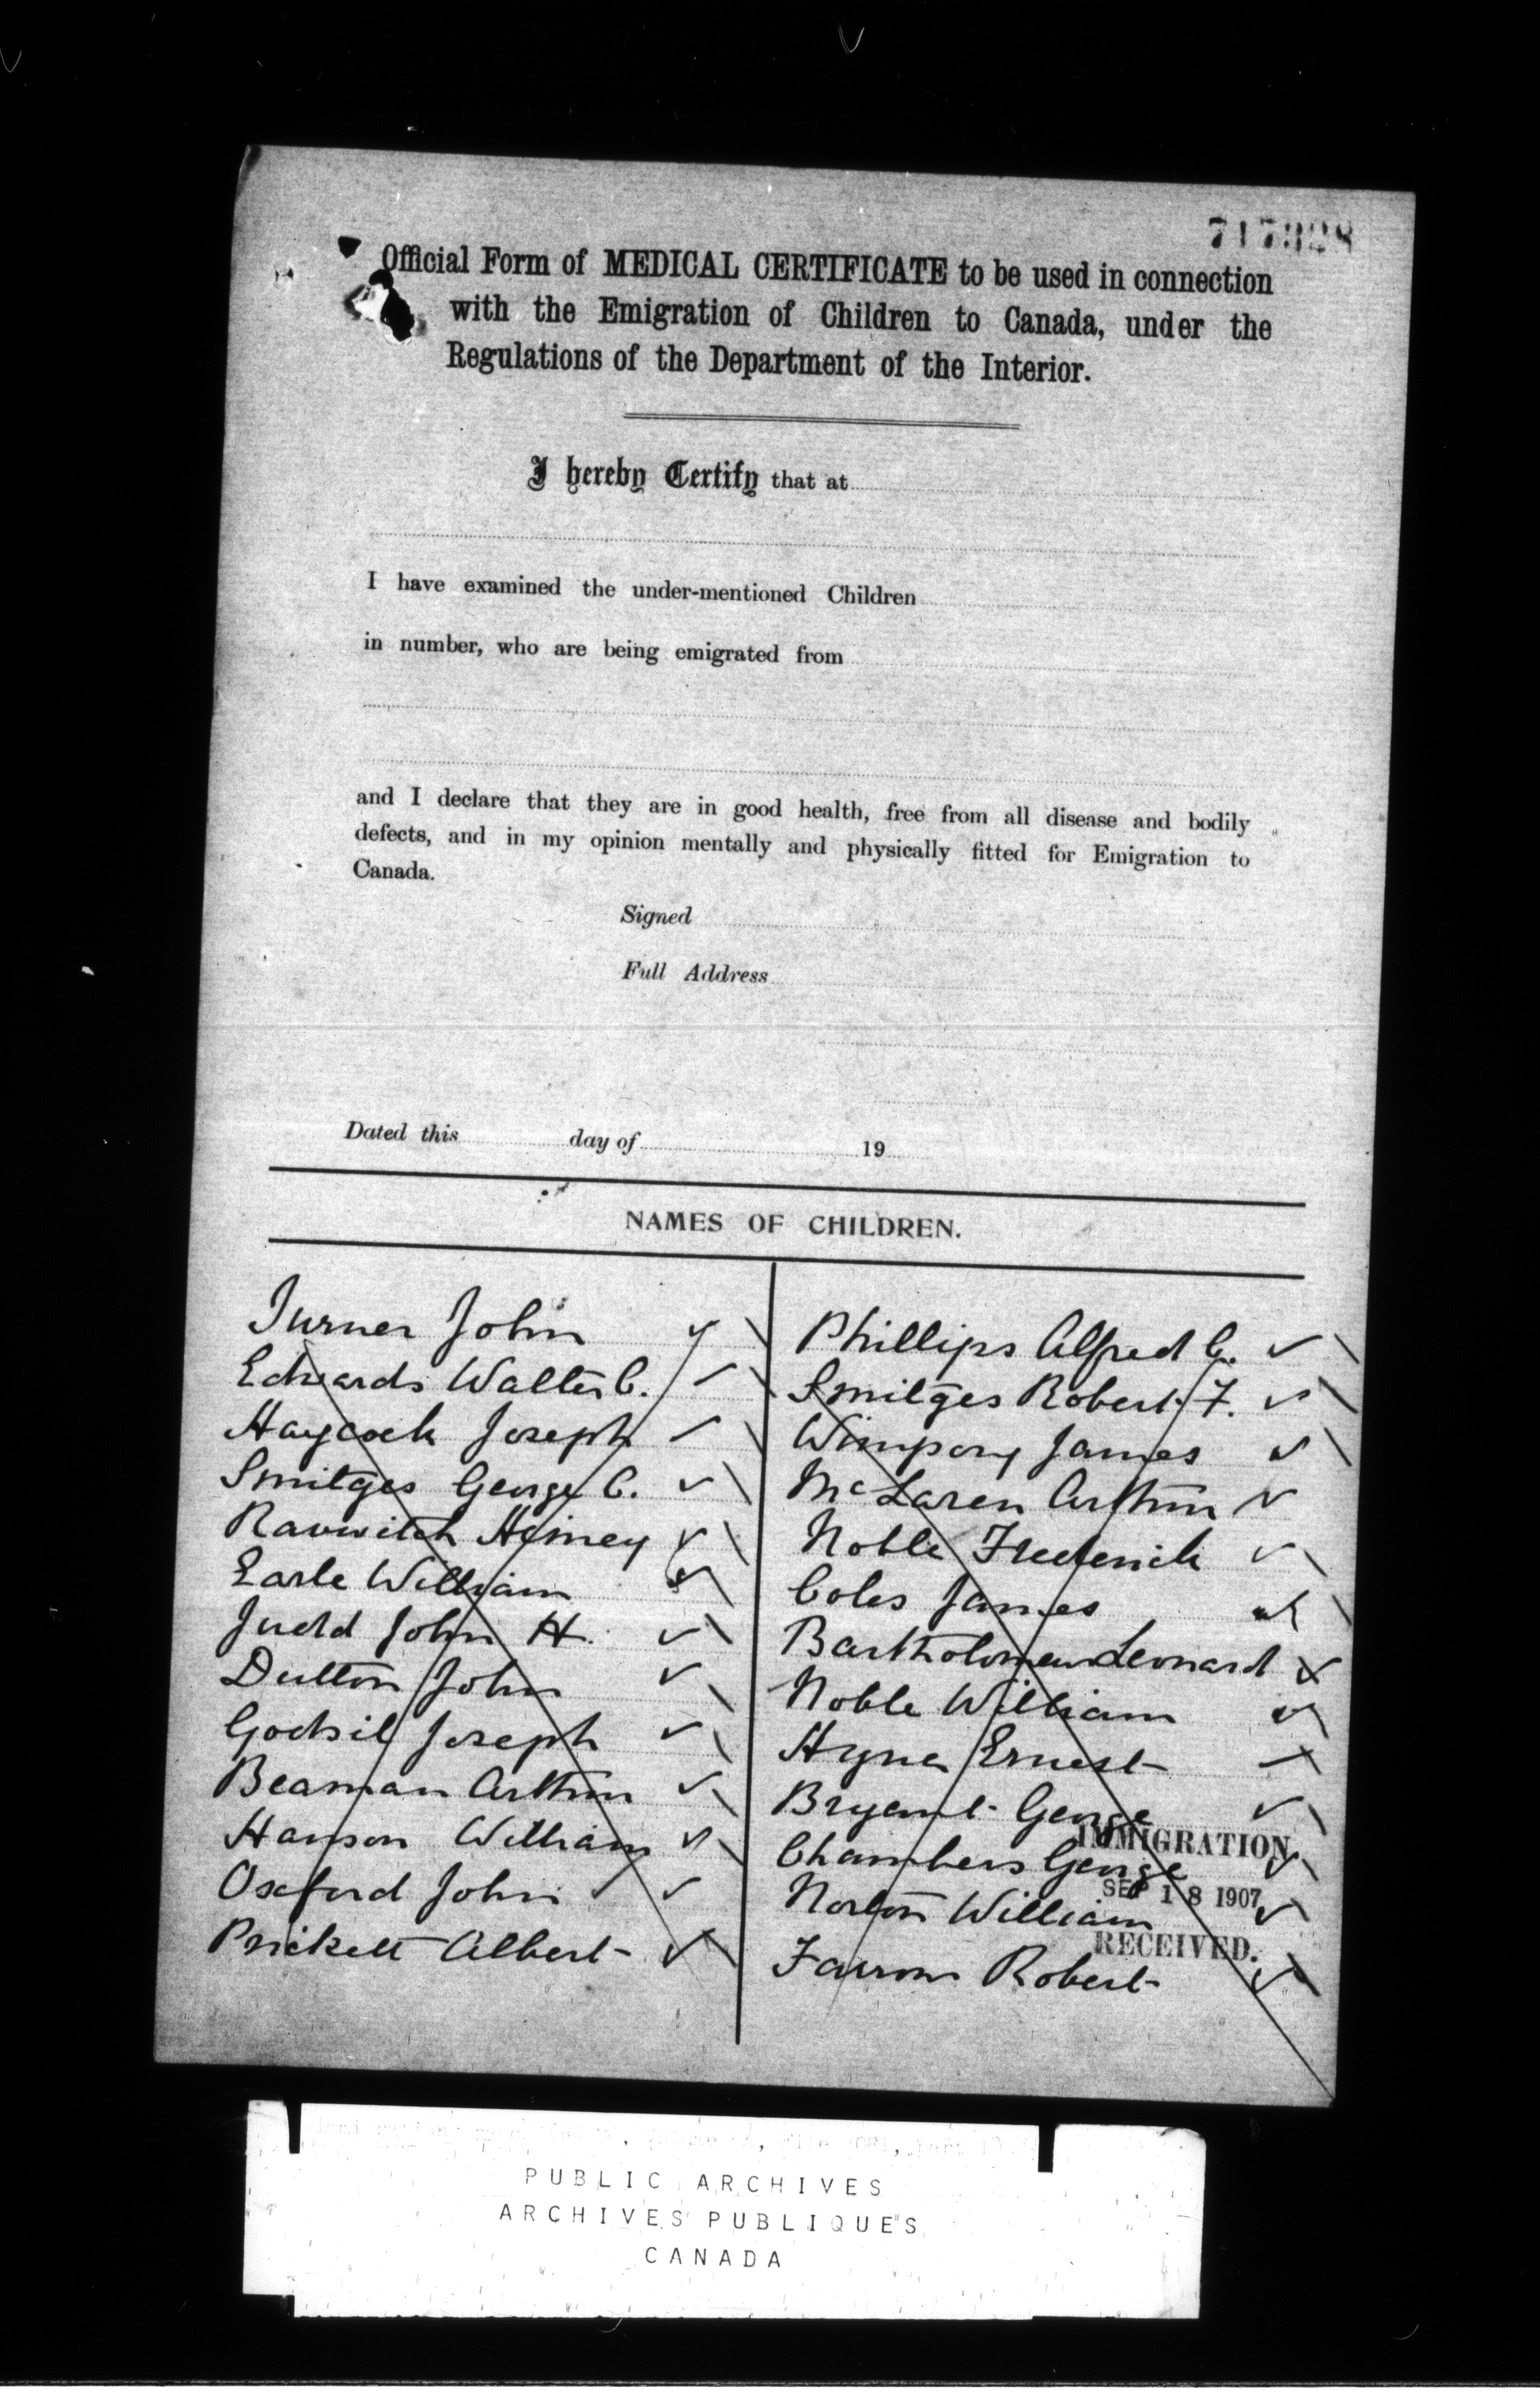 717328
Official Form of MEDICAL CERTIFICATE to be used in connection
with the Emigration of Children to Canada, under the
Regulations of the Department of the Interior.
I hereby Certify that at
I have examined the under-mentioned Children
in number, who are being emigrated from
and I declare that they are in good health, free from all disease and bodily
defects, and in my opinion mentally and physically fitted for Emigration to
Canada.
Signed
Full Address
Dated this day of 19
NAMES OF CHILDREN.
Turner John
Edwards Walter C.
Haycock Joseph
Smitges George C.
Ravwitch Hymey
Earle William
Judd John H.
Dutton John
Godsil Joseph
Beaman Arthur
Hanson William
Oxford John
Prickett Albert
Phillips Alfred C.
Smitges Robert F.
Wimpory James
McLaren Arthur
Noble Frederick
Coles James
Bartholomew Leonard
Noble William
Hyne Ernest
Bryant George
Chambers George
Norton William
Farrow Robert
IMMIGRATION
SEP 18 1907
RECEIVED.
PUBLIC ARCHIVES
ARCHIVES PUBLIQUES
CANADA